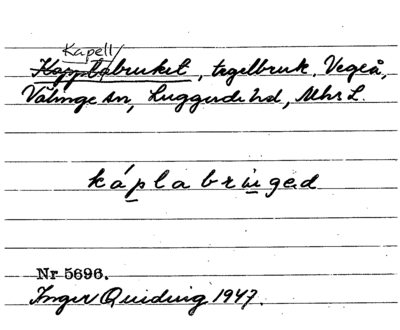 Kapell/
Kapplabruket, tegelbruk, Vegeå,
Välinge sn, Luggude hd, Mhs L.
kápla bruged
Nr 5696.
Inger Quiding 1947.